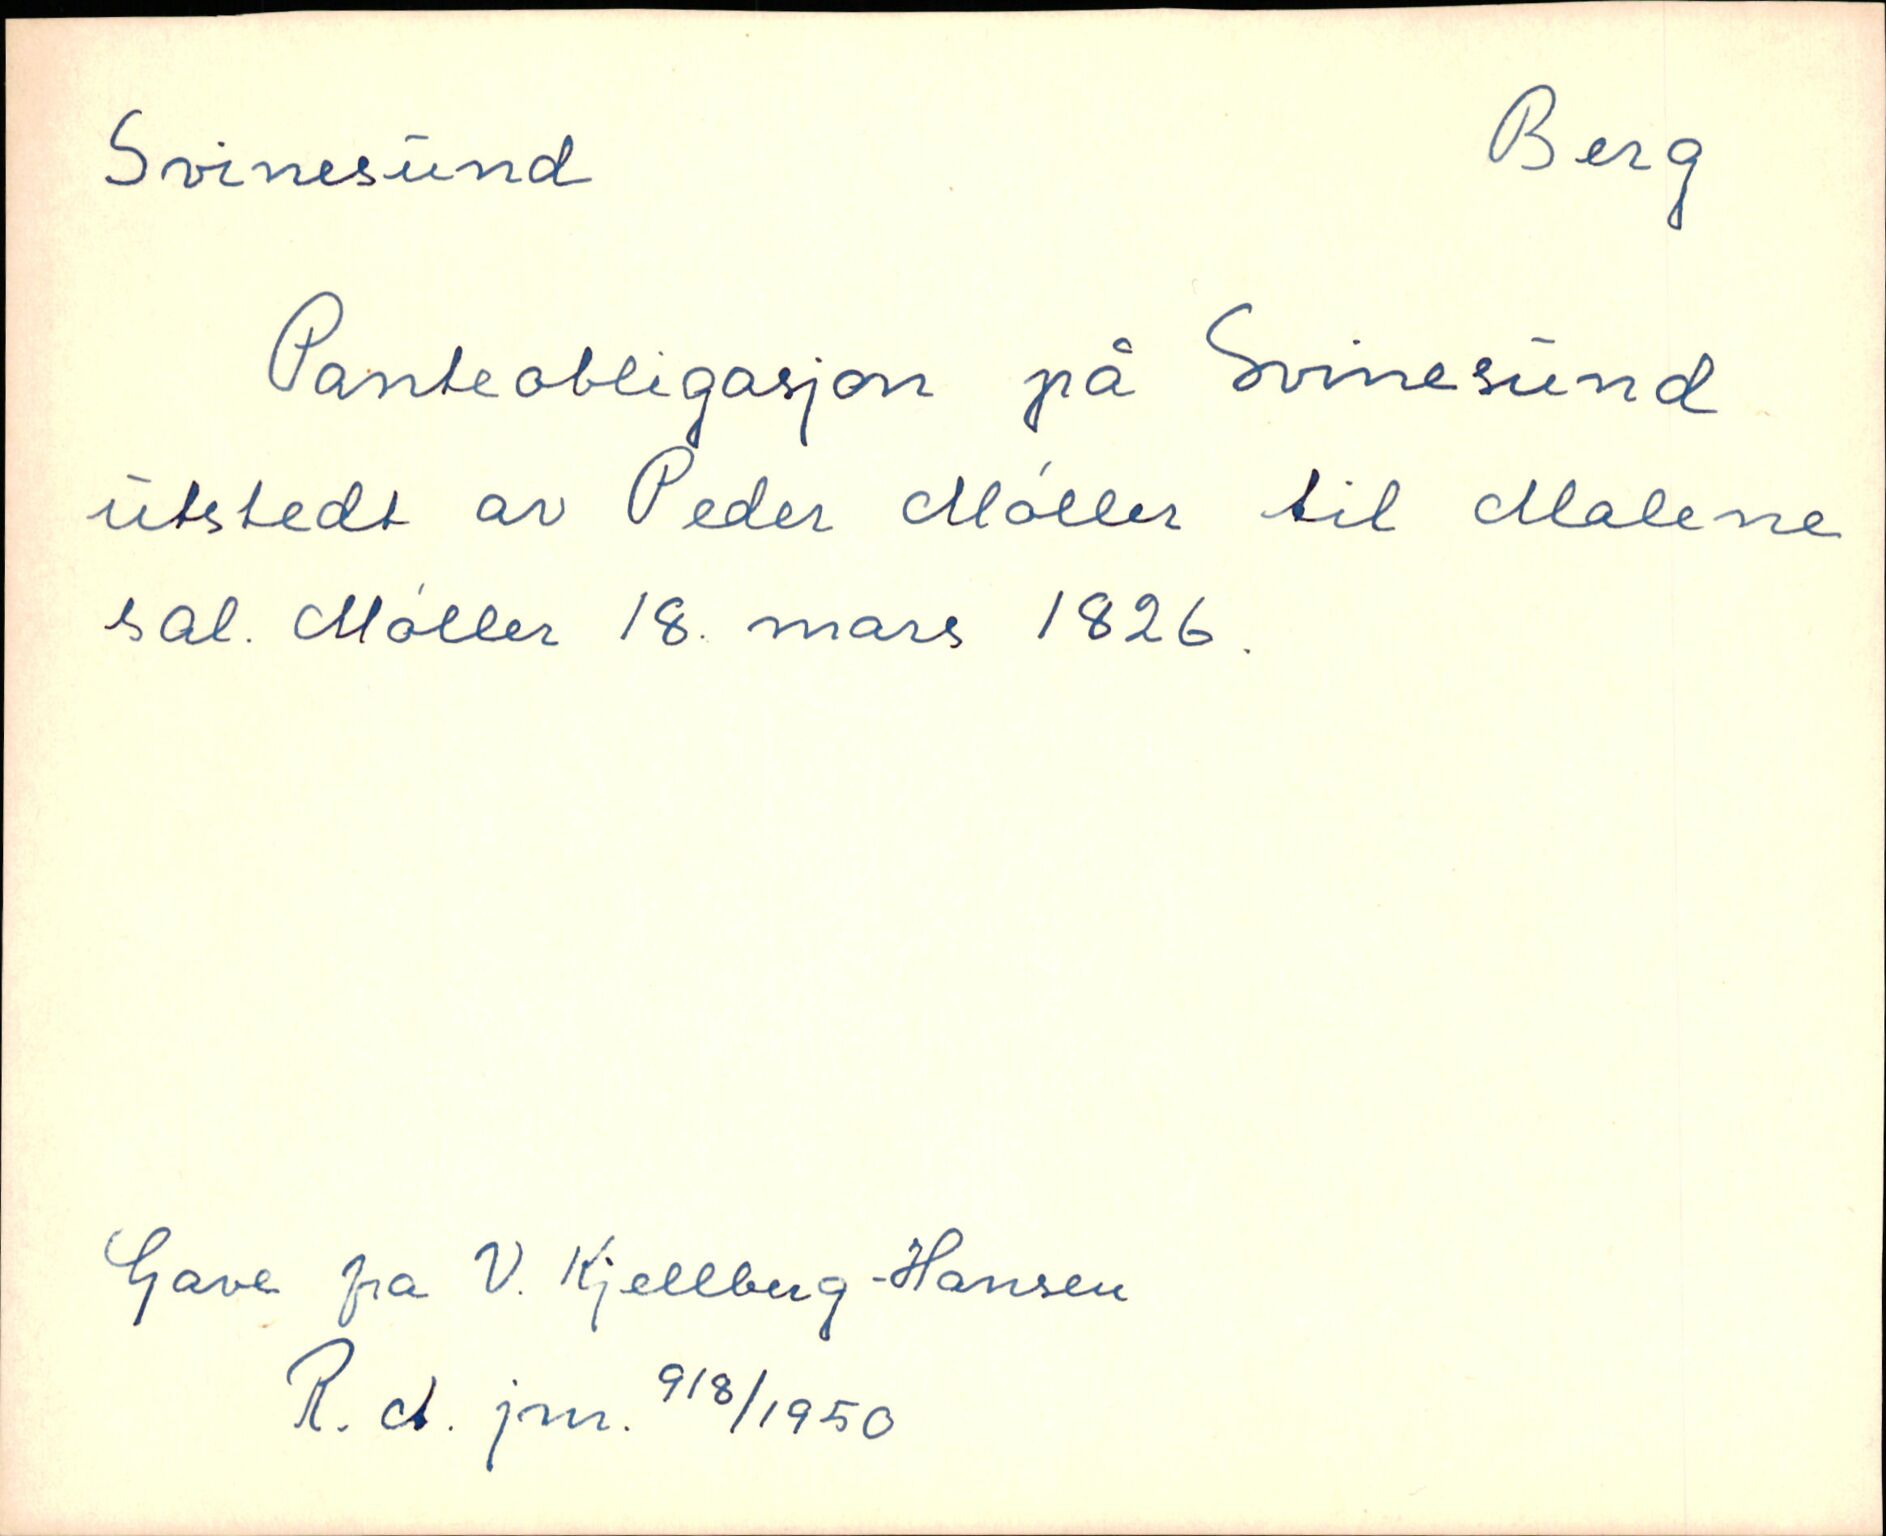 Svinesund Berg
Panteobligasjon på Svinesund
utstedt av Peder Møller til Malene
sal. Møller 18. mars 1826.
Gave fra V. Kjellberg-Hansen
R. A. jnr. 918/1950